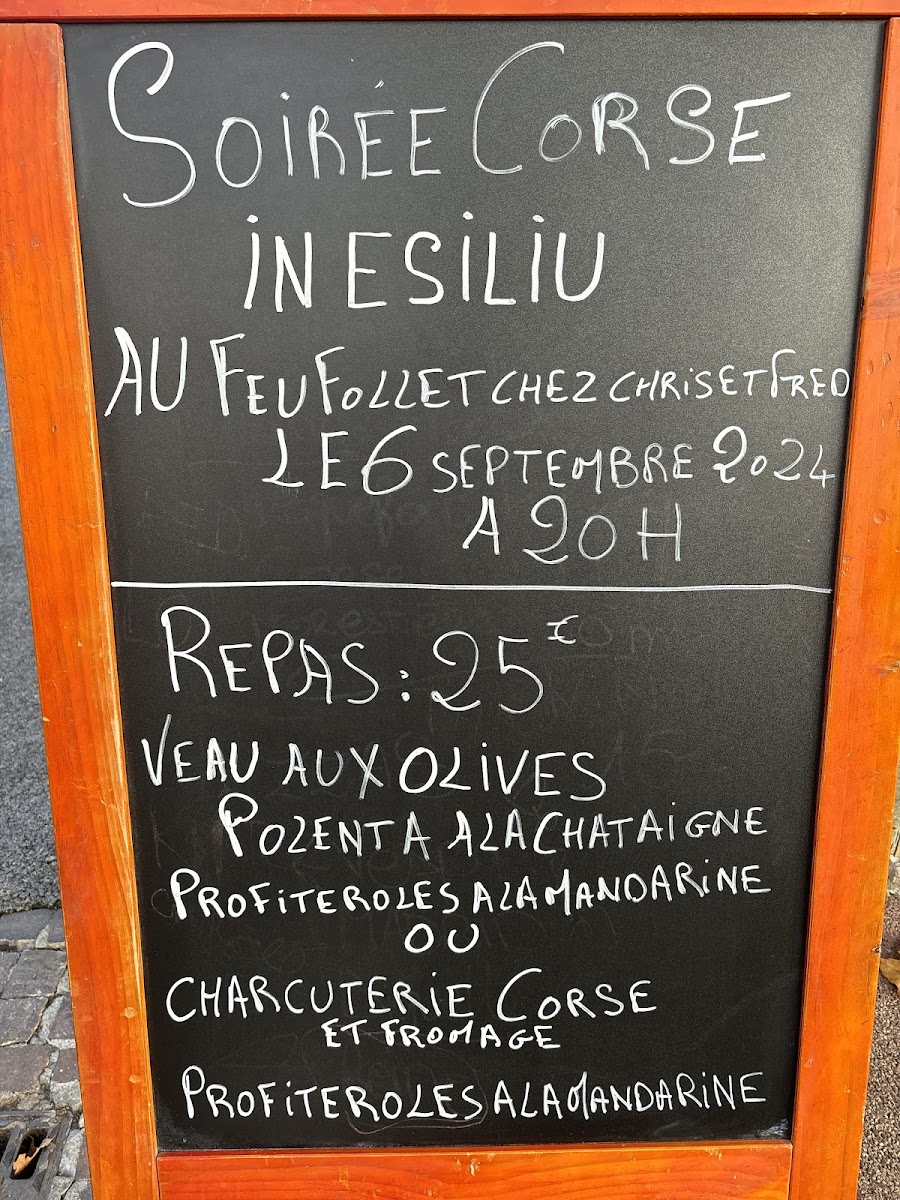 SOIRÉE CORSE
IN ESILIU
AU FEU FOLLET CHEZ CHRIS ET FRED
LE 6 SEPTEMBRE 2024
A 20H
REPAS : 25€
VEAU AUX OLIVES
POLENTA A LA CHATAIGNE
PROFITEROLES A LA MANDARINE
OU
CHARCUTERIE CORSE
ET FROMAGE
PROFITEROLES A LA MANDARINE